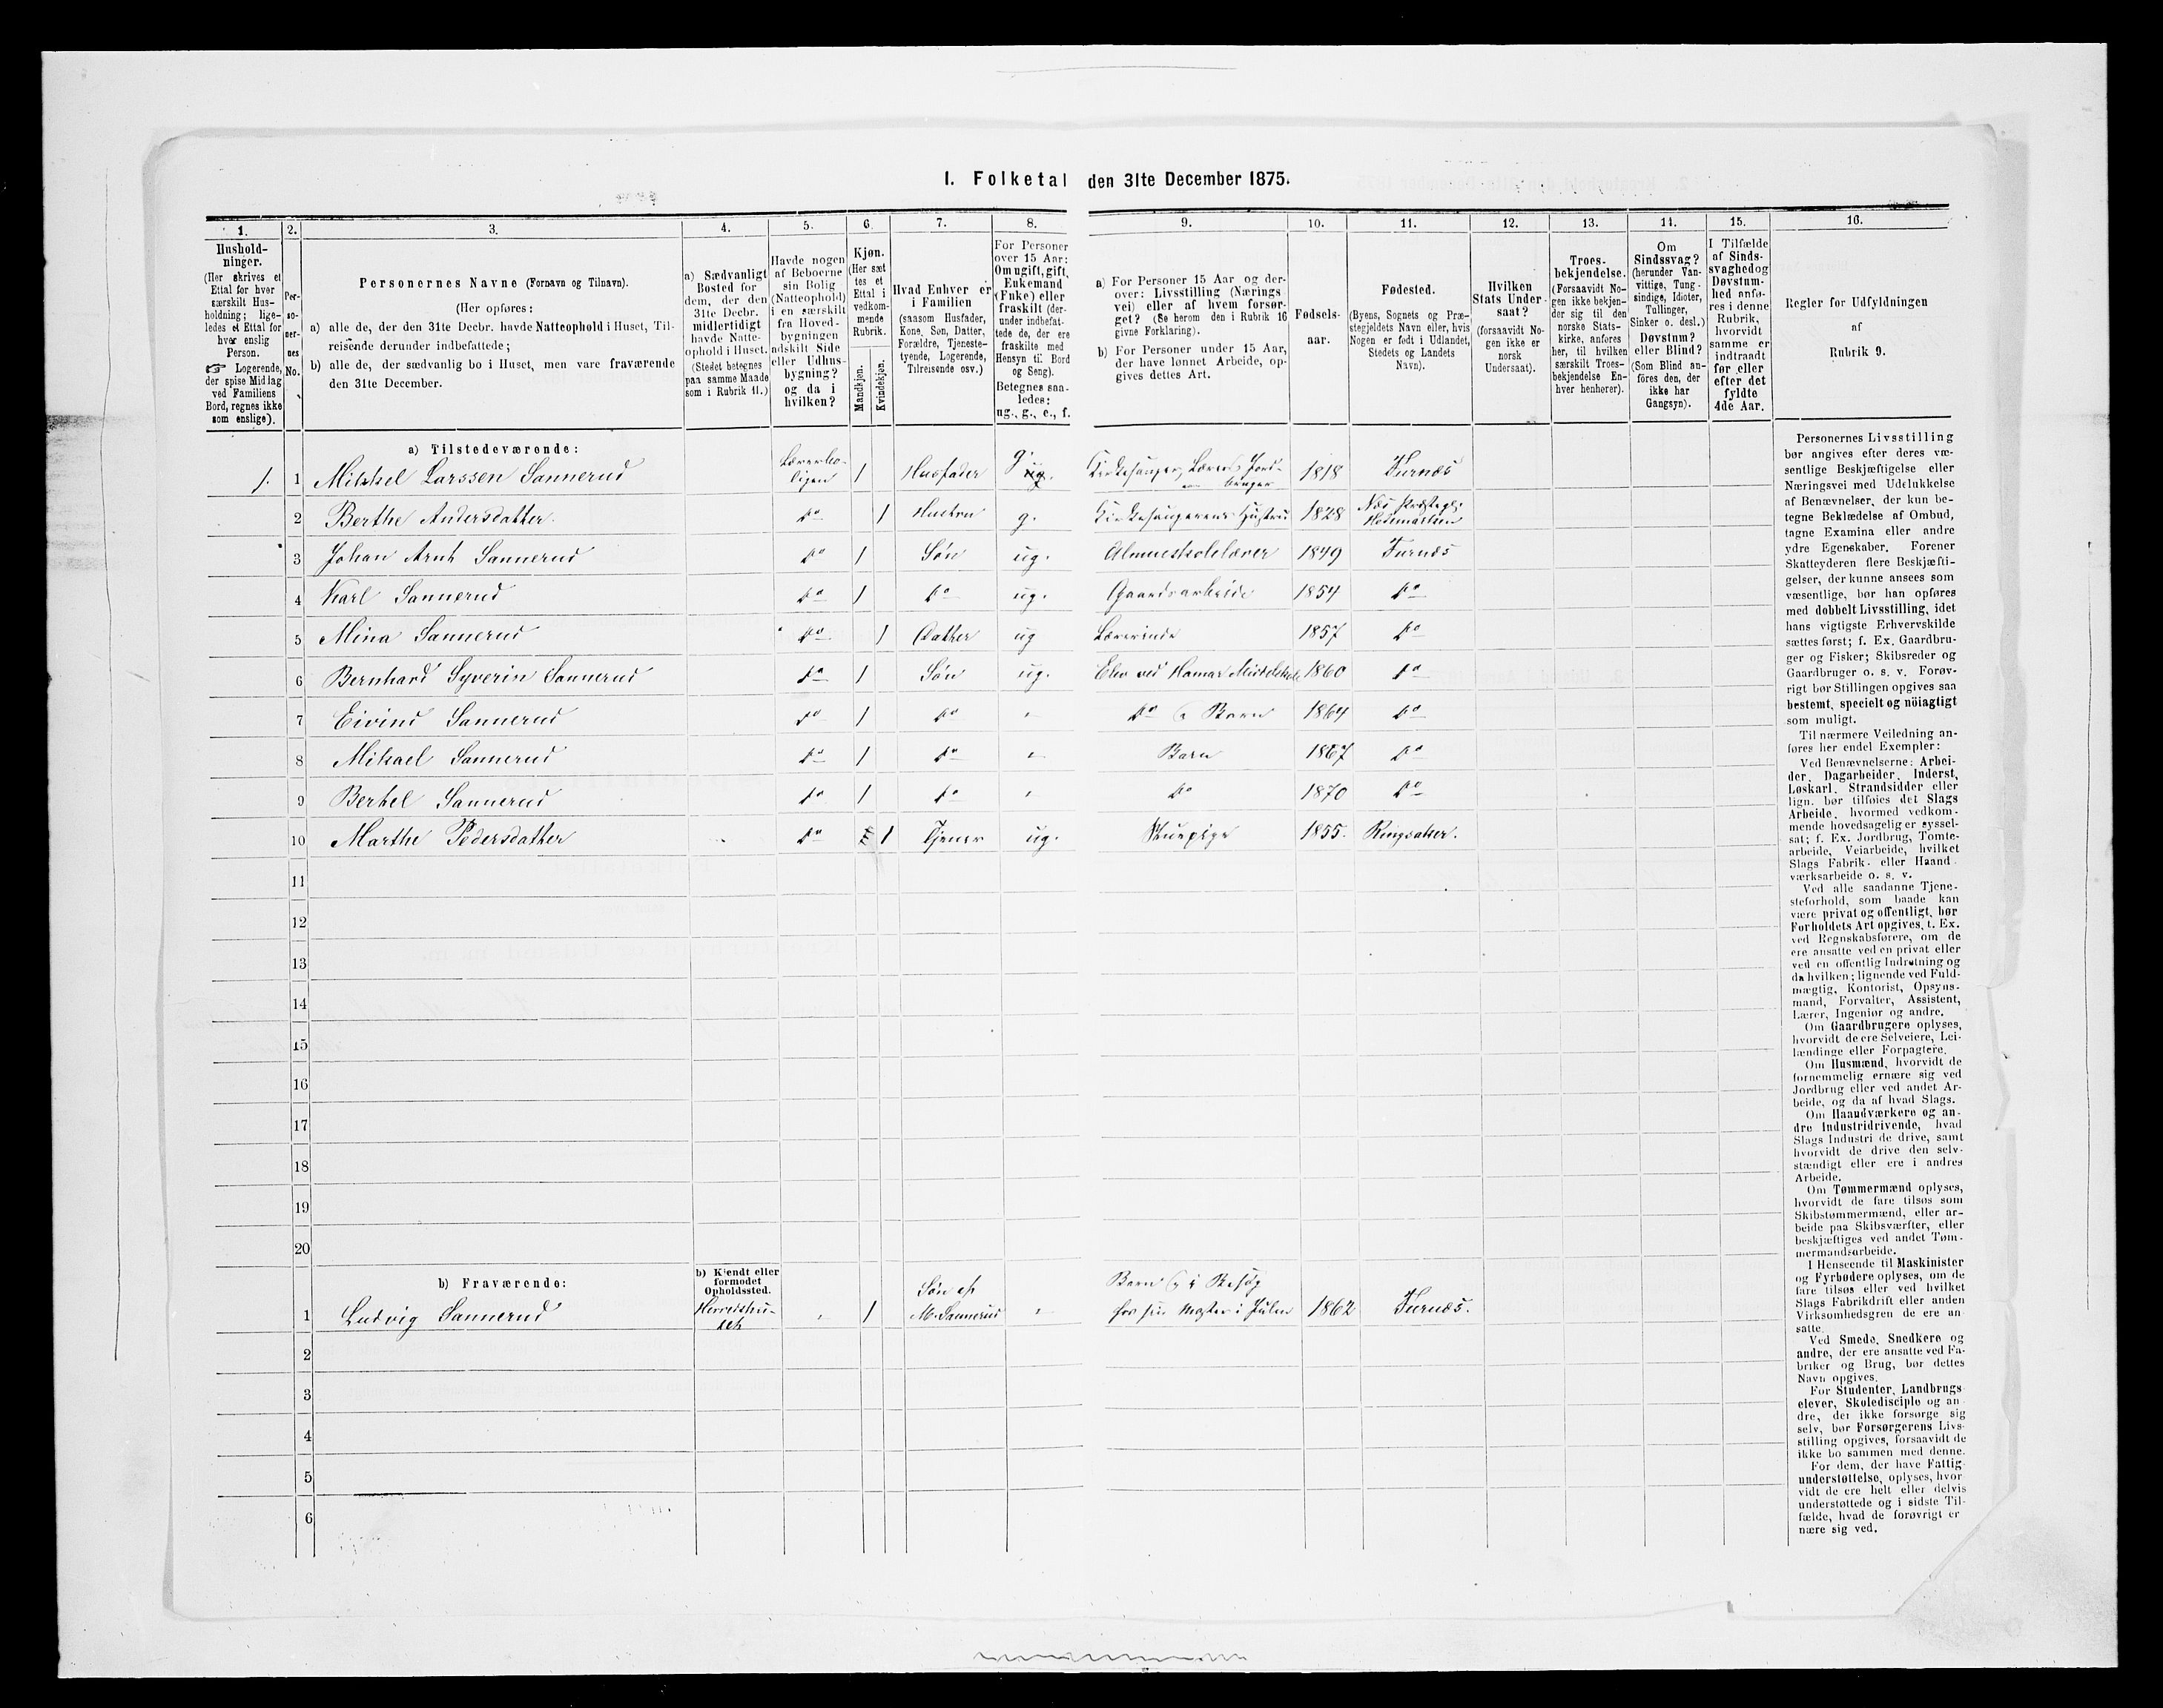 I. Folketal den 31te December 1875.
1. 2. 3. 4. 5. 6. 7. 8. 9. 10. 11. 12. 13. 14. 15. 16.
Hushold-
ninger.
(Her skrives et
Ettal for hver
særskilt Hus-
holdning; lige-
ledes et Ettal for
hver enslig
Person.
☞ Logerende,
der spise Middag
ved Familiens
Bord, regnes ikke
som enslige).
Per-
so-
ner-
nes
No.
Personernes Navne (Fornavn og Tilnavn).
(Her opføres:
a) alle de, der den 31te Decbr. havde Natteophold i Huset, Til-
reisende derunder indbefattede;
b) alle de, der sædvanlig bo i Huset, men vare fraværende
den 31te December.
a) Sædvanligt
Bosted for
dem, der den
31te Decbr.
midlertidigt
havde Natte-
ophold i Huset.
(Stedet betegnes
paa samme Maade
som i Rubrik 11.)
Havde nogen
af Beboerne
sin Bolig
(Natteophold)
i en særskilt
fra Hoved-
bygningen
adskilt Side
eller Udhus-
bygning?
og da i
hvilken?
Kjøn.
(Her sæt
tes et
Ettal i
vedkom-
mende
Rubrik.
Mandkjøn.
Kvindekjøn.
Hvad Enhver er
i Familien
(saasom Husfader,
Kone, Søn, Datter,
Forældre, Tjeneste-
tyende, Logerende,
Tilreisende osv.)
For Personer
over 15 Aar:
Om ugift, gift,
Enkemand
(Enke) eller
fraskilt (der-
under indbefat-
tede de, der ere
fraskilte med
Hensyn til Bord
og Seng).
Betegnes saa-
ledes:
ug., g., e., f.
a) For Personer 15 Aar og der-
over: Livsstilling (Nærings
vei) eller af hvem forsør-
get? (Se herom den i Rubrik 16
givne Forklaring).
b) For Personer under 15 Aar,
der have lønnet Arbeide, op-
gives dettes Art.
Fødsels-
aar.
Fødested.
(Byens, Sognets og Præ-
stegjeldets Navn eller, hvis
Nogen er født i Udlandet,
Stedets og Landets
Navn).
Hvilken
Stats Under-
saat?
(forsaavidt No-
gen ikke er
norsk
Undersaat).
Troes-
bekjendelse.
(Forsaavidt No-
gen ikke bekjen-
der sig til den
norske Stats-
kirke, anføres
her, til hvilken
særskilt Troes-
bekjendelse En-
hver henhører).
Om
Sindssvag?
(herunder Van-
vittige, Tung-
sindige, Idioter,
Tullinger,
Sinker o. desl.)
Døvstum?
eller Blind?
(Som Blind an-
føres den, der
ikke har
Gangsyn).
I Tilfælde
af Sinds-
svaghed og
Døvstum-
hed anfø-
res i denne
Rubrik,
hvorvidt
samme er
indtraadt
før eller
efter det
fyldte
4de Aar.
Regler for Udfyldningen
af
Rubrik 9.
a) Tilstedeværende:
1. 1 Mikkel Larssen Sannerud Lærerbo-ligen 1 Husfader g. ug. Kirkesanger, Lærer Jordbruger 1818 Furnæs
2 Berthe Andersdatter. do 1 Hustru g. Kirkesangerens Hustru 1828 Næs Præstegj: Hedemarken
3 Johan Arnt Sannerud do 1 Søn ug. Almueskolelærer 1849 Furnæs
4 Karl Sannerud do 1 do ug. Gaardsarbeide 1854 do
5 Mina Sannerud do 1 Datter ug Lærerinde 1857 do
6 Bernhard Syverin Sannerud do 1 Søn ug. Elev ved Hamar Middelskole 1860 do
7 Eivind Sannerud do 1 do do Barn 1864 do
8 Mikael Sannerud do 1 do Barn 1867 do
9 Berhel Sannerud do 1 do do 1870 do
10 Marthe Pedersdatter do 1 Tjener ug. Stuepige 1855. Ringsaker.
11
12
13
14
15
16
17
18
19
20
b) Fraværende:
b) Kjendt eller
formodet
Opholdssted.
1 Ludvig Sannerud 1 Søn af M. Sannerud Barn i Besøg 1862 Furnæs.
2
3
4
5
6
Personernes Livsstilling
bør angives efter deres væ-
sentlige Beskjæftigelse eller
Næringsvei med Udelukkelse
af Benævnelser, der kun be-
tegne Beklædelse af Ombud,
tagne Examina eller andre
ydre Egenskaber. Forener
Skatteyderen flere Beskjæfti-
gelser, der kunne ansees som
væsentlige, bør han opføres
med dobbelt Livsstilling, idet
hans vigtigste Erhvervskilde
sættes først; f. Ex. Gaardbru-
ger og Fisker; Skibsreder og
Gaardbruger o. s. v. Forøv-
rigt bør Stillingen opgives saa
bestemt, specielt og nöiagtigt
som muligt.
Til nærmere Veiledning an-
føres her endel Exempler:
Ved Benævnelserne: Arbei-
der, Dagarbeider, Inderst,
Løskarl, Strandsidder eller
lign. bør tilføies det Slags
Arbeide, hvormed vedkom-
mende hovedsagelig er syssel-
sat; f. Ex. Jordbrug, Tomte-
arbeide, Veiarbeide, hvilket
Slags Fabrik- eller Haand-
værksarbeide o. s. v.
Ved alle saadanne Tjene-
steforhold, som baade kan
være privat og offentligt, bør
Forholdets Art opgives, t. Ex.
ved Regnskabsførere, om de
ere ansatte ved en privat eller
ved en offentlig Indretning og
da hvilken; lignende ved Fuld-
mægtig, Kontorist, Opsyns-
mand, Forvalter, Assistent,
Lærer, Ingeniør og andre.
Om Gaardbrugere oplyses,
hvorvidt de ere Selveiere, Lei-
lændinge eller Forpagtere.
Om Husmænd, hvorvidt de
fornemmelig ernære sig ved
Jordbrug eller ved andet Ar-
beide, og da af hvad Slags.
Om Haandværkere og an-
dre Industridrivende, hvad
Slags Industri de drive, samt
hvorvidt de drive den selv-
stændigt eller ere i andres
Arbeide.
Om Tømmermænd oplyses,
hvorvidt de fare tilsøs som
Skibstømmermænd, eller ar-
beide paa Skibsværfter, eller
beskjæftiges ved andet Tøm-
mermandsarbeide.
I Henseende til Maskinister
og Fyrbødere oplyses, om de
fare tilsøs eller ved hvilket
Slags Fabrikdrift eller anden
Virksomhedsgren de ere an-
satte.
Ved Smede, Snedkere og
andre, der ere ansatte ved Fa-
briker og Brug, bør dettes
Navn opgives.
For Studenter, Landbrugs-
elever, Skoledisciple og an-
dre, der ikke forsørge sig
selv, bør Forsørgerens Livs-
stilling opgives, forsaavidt de
ikke bo sammen med denne.
For dem, der have Fattig-
understøttelse, oplyses, hvor-
vidt de ere helt eller delvis
understøttede og i sidste Til-
fælde, hvad de forøvrigt er
nære sig ved.